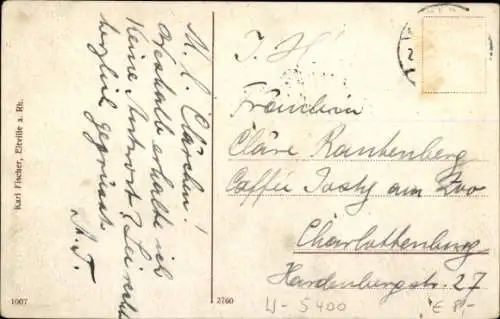 M. l. Clärchen!
Weshalb erhalte ich
keine Antwort? Sei recht
herzlich gegrüsst.
A. T.
Karl Fischer, Eltville a. Rh.
1007
2760
I. H.
Fräulein
Cläre Rautenberg
Caffée Josty am Zoo
Charlottenburg
Hardenbergstr. 27
W- 5400
€ 8,-